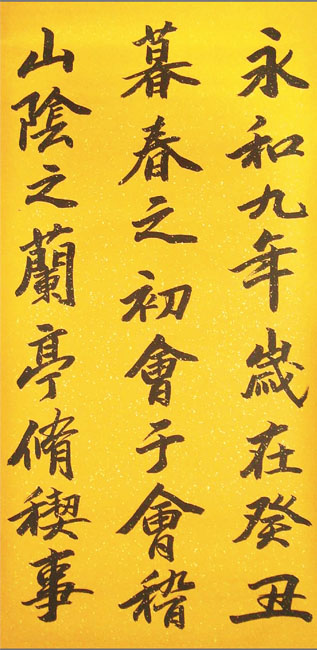 永和九年歲在癸丑
暮春之初會于會稽
山陰之蘭亭脩稧事